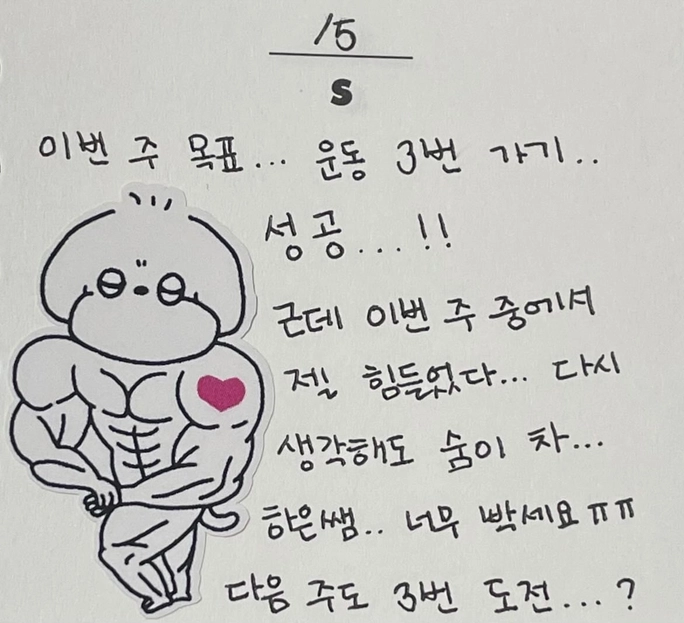 /5
S
이번 주 목표... 운동 3번 가기..
성공...!!
근데 이번 주 중에서
제일 힘들었다... 다시
생각해도 숨이 차...
하은쌤.. 너무 빡세요ㅠㅠ
다음 주도 3번 도전...?